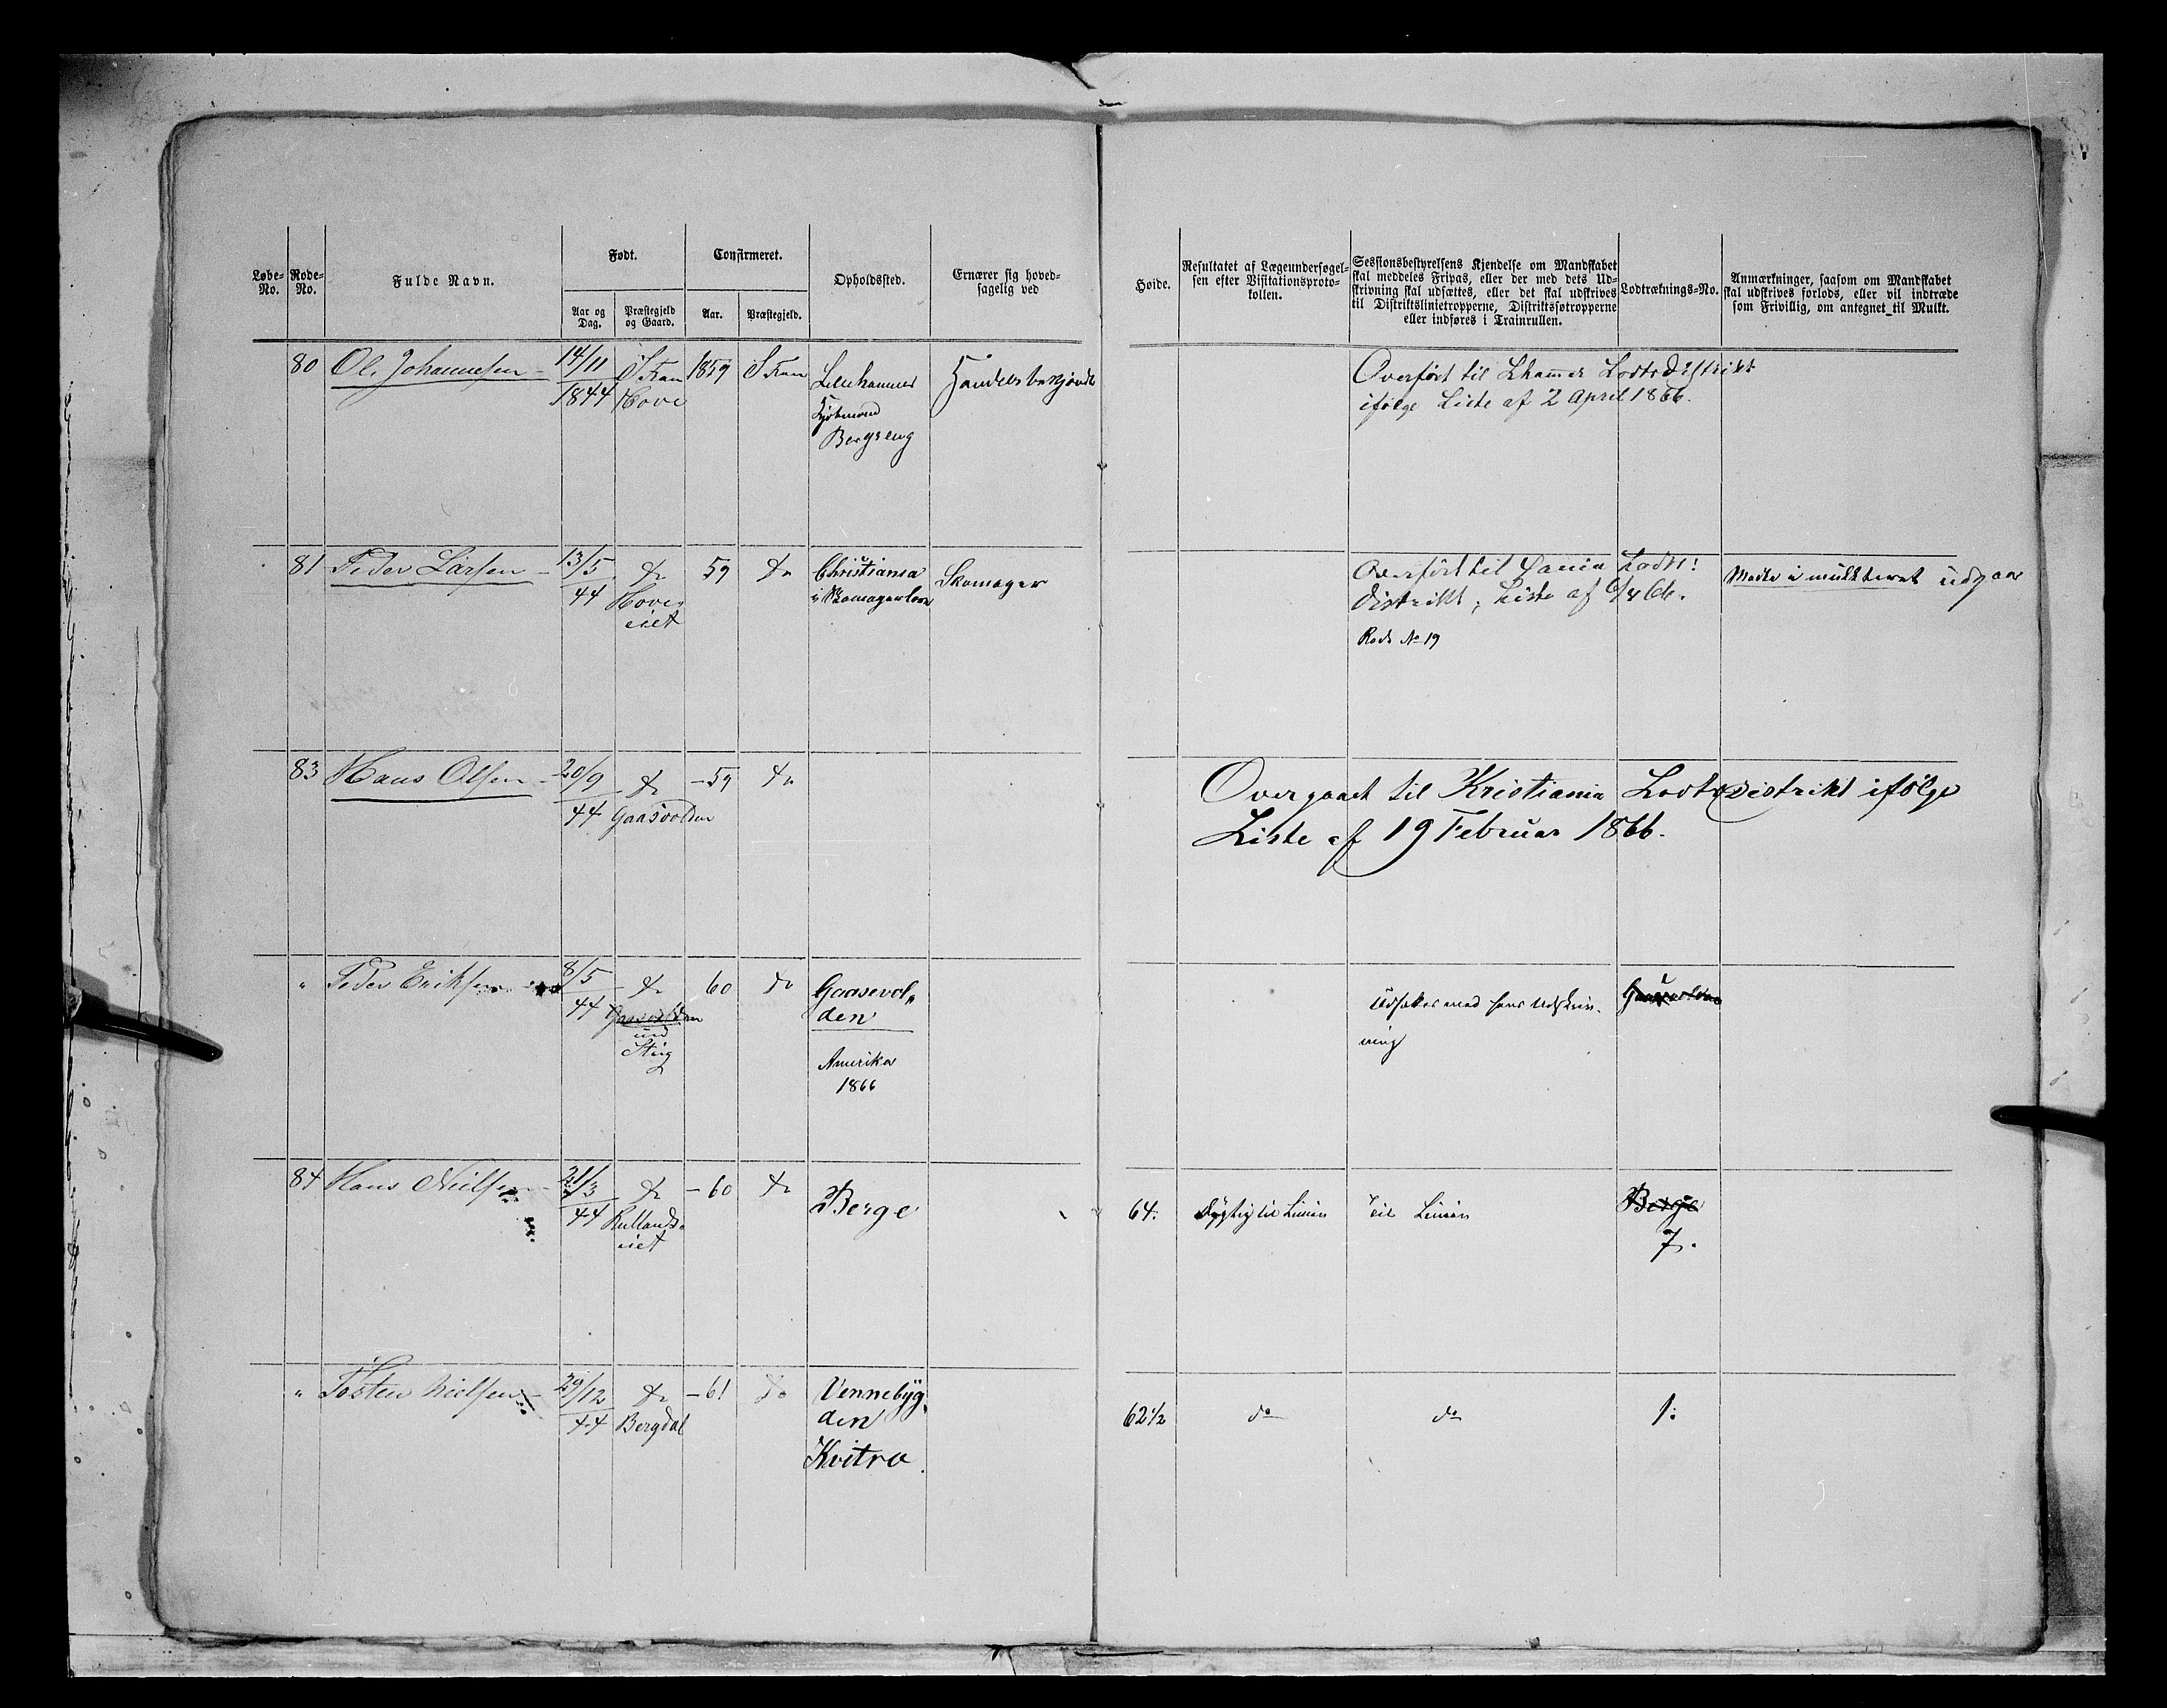 Løbe-No.
Rode-No.
Fulde Navn.
Født.
Aar og Dag.
Præstegjeld og Gaard.
Confirmeret.
Aar.
Præstegjeld.
Opholdssted.
Ernærer sig hoved-
sagelig ved
Høide.
Resultatet af Lægeundersøgel-
sen efter Visitationsproto-
kollen.
Sessionsbestyrelsens Kjendelse om Mandskabet
skal meddeles Fripas, eller der med dets Ud-
skrivning skal udsættes, eller det skal udskrives
til Distriktslinietropperne, Distriktssøtropperne
eller indføres i Trainrullen.
Lodtræknings-No.
Anmærkninger, saasom om Mandskabet
skal udskrives forlods, eller vil indtræde
som Frivillig, om antegnet til Mulkt.
80 Ole Johannesen 14/11 1844 S Fran Hove 1859 S Fran
Lillehammer
Kjøbmand
Bergseng
Handelsbetjendt
Overført til Lhamer Lodtr Distrikt
ifølge Liste af 2 April 1866.
81 Peder Larsen 13/5 44 do Hove
eiet
59 do
Christiania
i Skomagerlære
Skomager
Overført til Xania Lodtr:
distrikt, Liste af 6/4 66.
Rode No 19
Mødte i mulkteret udgaar
83 Hans Olsen 20/9 44 do Gaasvolden – 59 do
Overgaaet til Kristiania Lodtr distrikt ifølge
Liste af 19 Februar 1866.
" Peder Eriksen 8/5 44 do Gaasvolden
und
Stig
60 do
Gaasevol„
den
Amerika
1866
Udsættes med hans Udskriv-
ning
Gaasvolden
84 Hans Nielsen 21/3 44 do Rullands
eiet
– 60 do Berge
64. dygtig til Linien Til Linien Berge
7.
" Tosten Nielsen 29/12 44 do Bergdal – 61 do
Vennebyg„
den
Kvitra
62½ do do 1.